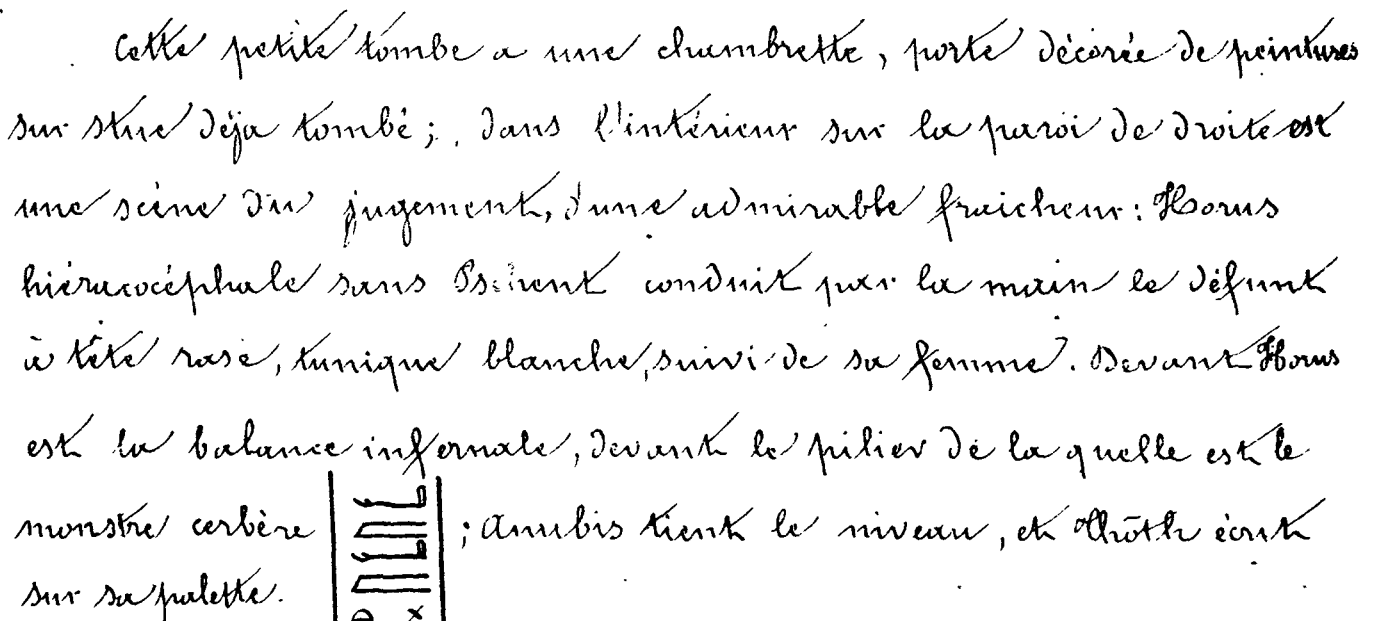 Cette petite tombe a une chambrette, porte décorée de peintures
sur stuc déja tombé; dans l'intérieur sur la paroi de droite est
une scène du jugement, d'une admirable fraicheur: Horus
hiéracocéphale sans Pschent conduit par la main le défunt
à tête rase, tunique blanche, suivi de sa femme. Devant Horus
est la balance infernale, devant le pilier de la quelle est le
monstre cerbère ; Anubis tient le niveau, et Thôth écrit
sur sa palette.